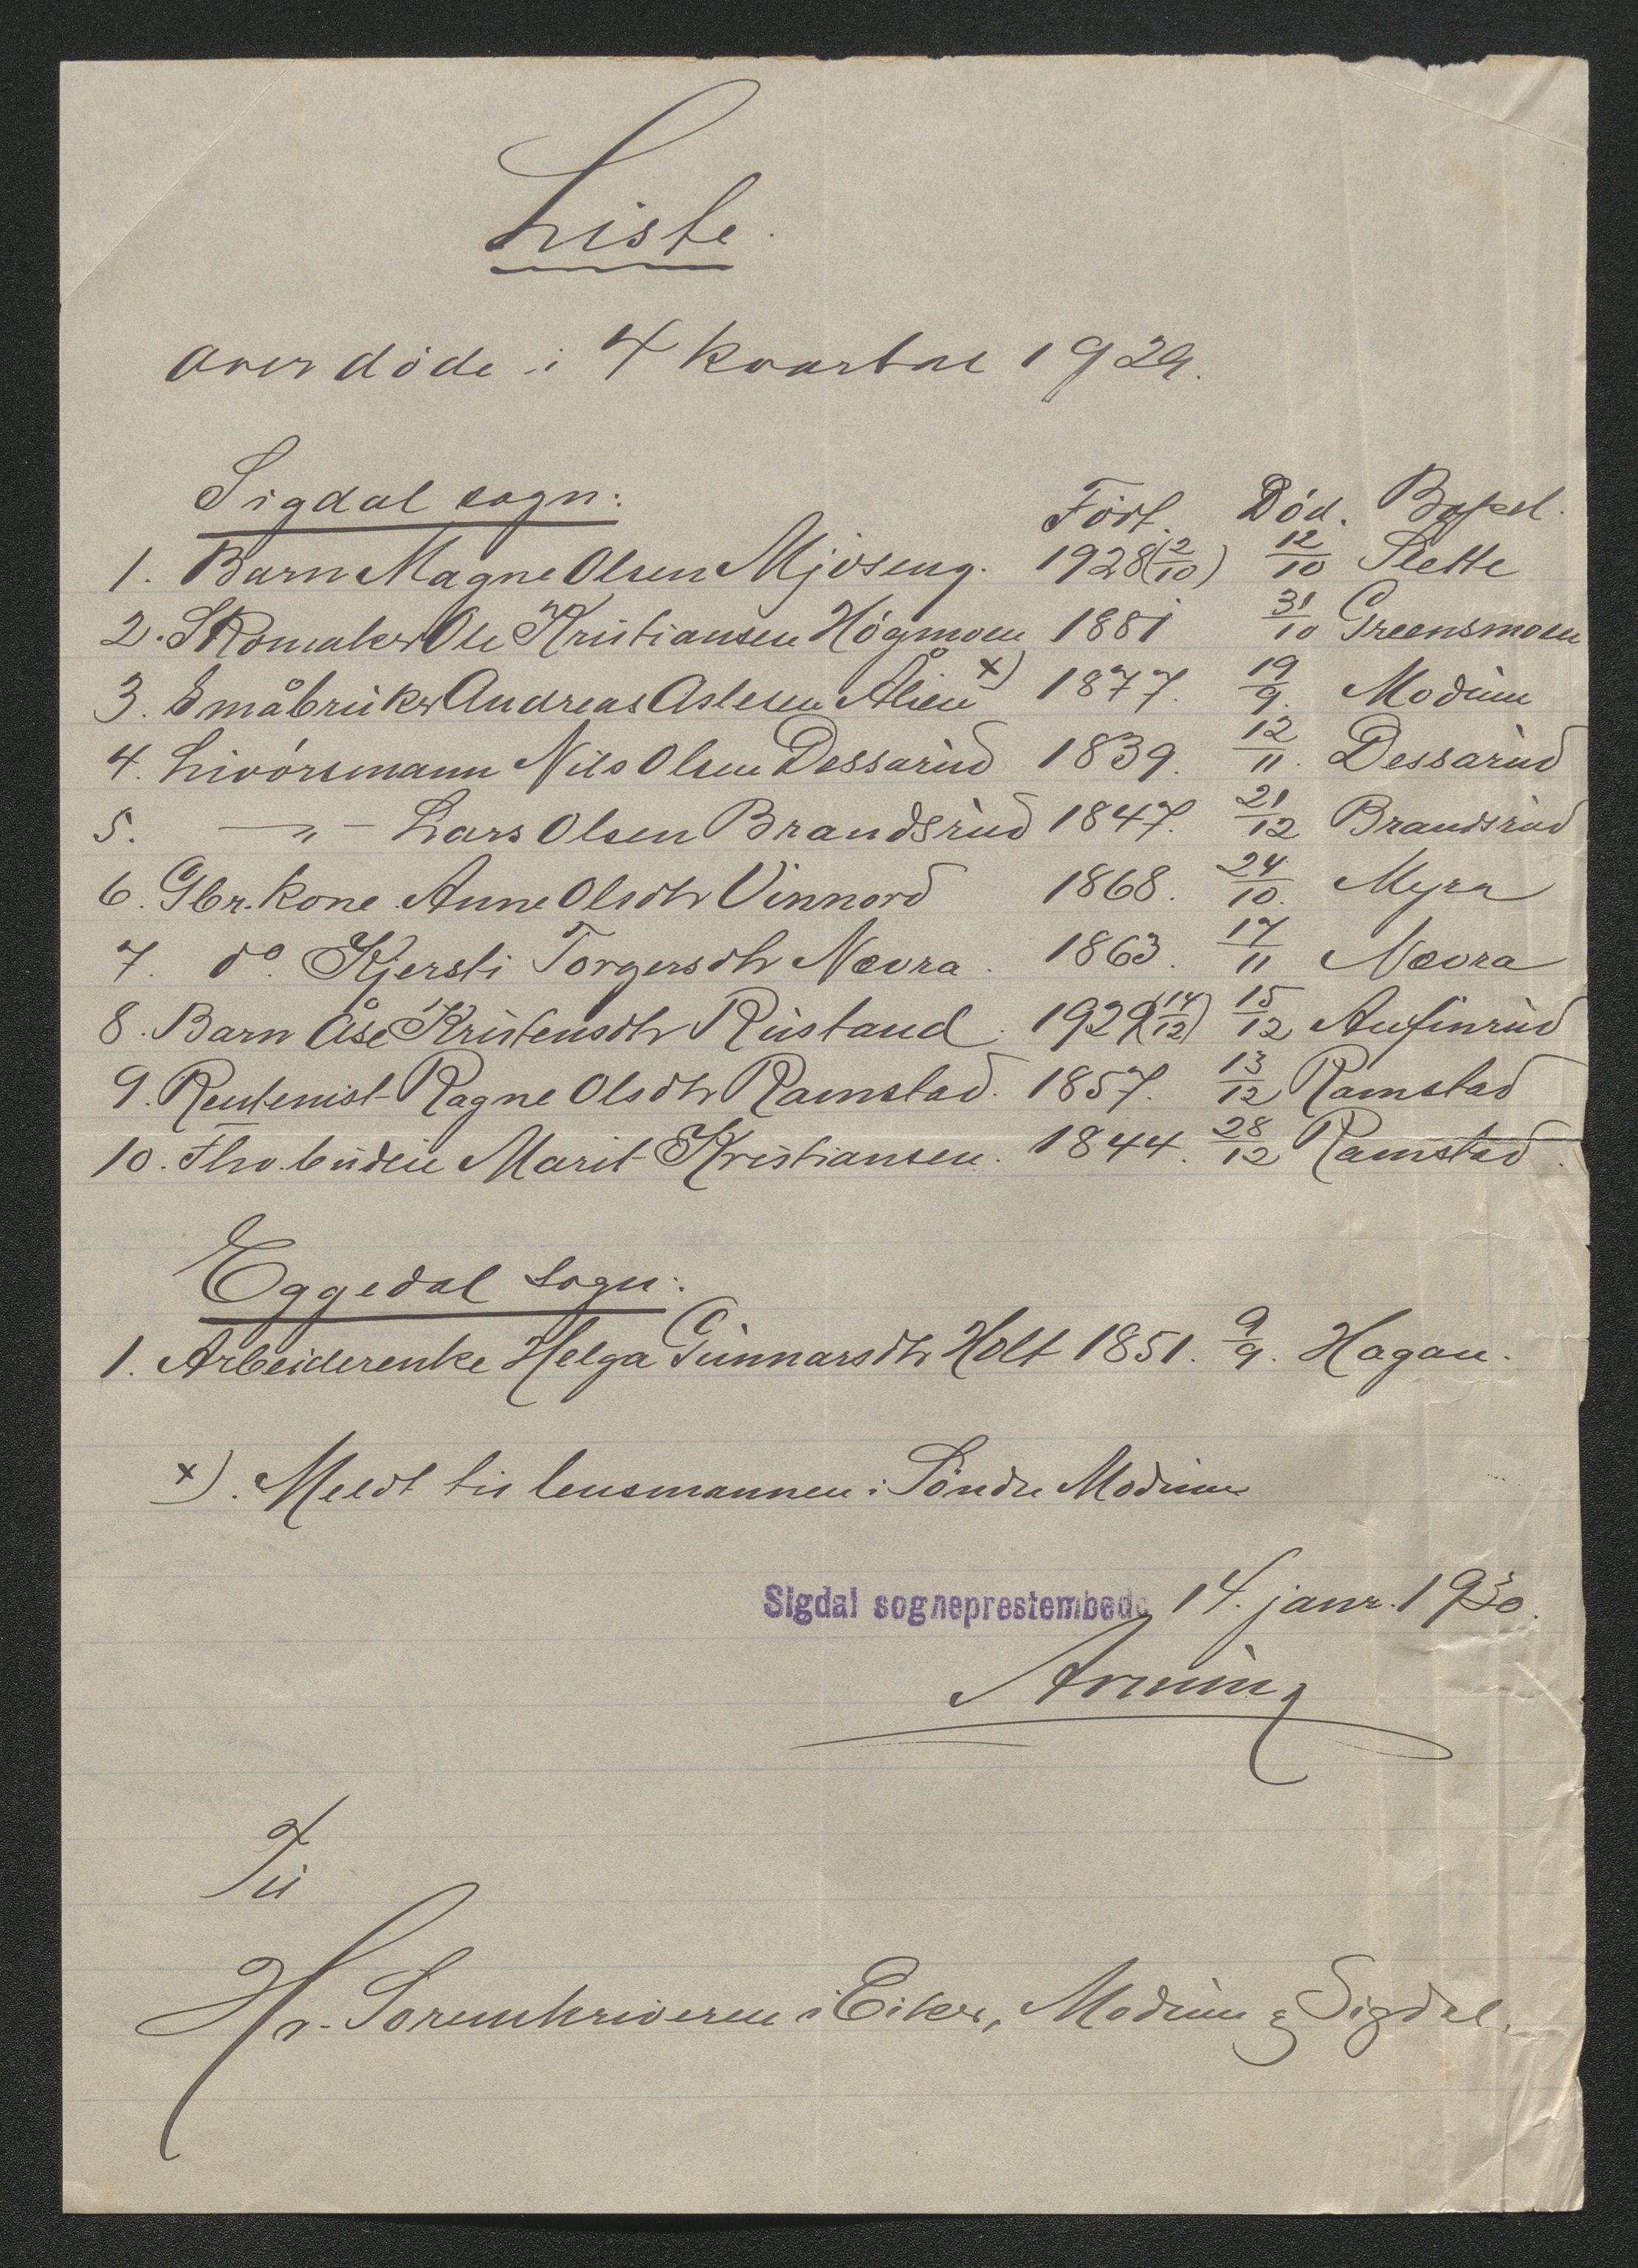 Liste.
over döde i 4 kvartal 1929.
Sigdal sogn:
Född. Död. Bopæl.
1. Barn Magne Olsen Mjøseng. 1928 (2/10) 12/10 Slette
2. Skomaker Ole Kristiansen Högmoen 1881 31/10 Greensmoen
3. Småbruker Andreas Aslesen Ålien x) 1877. 19/9. Modum
4. Livörsmann Nils Olsen Dessarud 1839. 12/11. Dessarud
5. —„— Lars Olsen Brandsrud 1847. 21/12 Brandsrud
6. Gbr. kone Anne Olsdtr Vinnord 1868. 24/10. Myra
7. do. Kjersti Torgersdtr Nævra. 1863. 17/11 Nævra
8. Barn Åse Kristensdtr Rustand. 1929 (14/12) 15/12 Aufinrud
9. Rentenist Ragne Olsdtr Ramstad. 1857. 13/12 Ramstad
10. Fhv. budeie Marit Kristiansen. 1844. 28/12 Ramstad.
Eggedal sogn:
1. Arbeiderenke Helga Gunnarsdtr Holt 1851. 9/9. Hagan.
x). Meldt til lensmannen i Söndre Modum
Sigdal sogneprestembede 14. janr. 1930.
Til
Hr. Sorenskriveren i Eiker, Modum & Sigdal.